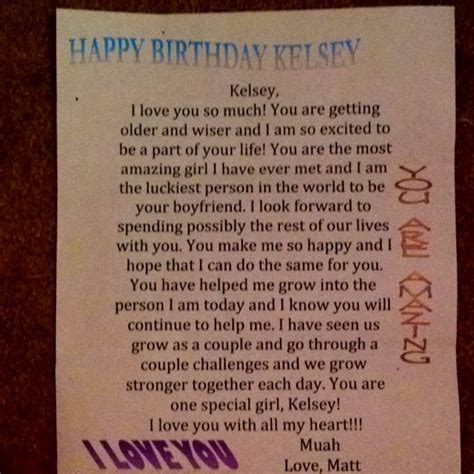 HAPPY BIRTHDAY KELSEY
Kelsey,
I love you so much! You are getting
older and wiser and I am so excited to
be a part of your life! You are the most
amazing girl I have ever met and I am
the luckiest person in the world to be
your boyfriend. I look forward to
spending possibly the rest of our lives
with you. You make me so happy and I
hope that I can do the same for you.
You have helped me grow into the
person I am today and I know you will
continue to help me. I have seen us
grow as a couple and go through a
couple challenges and we grow
stronger together each day. You are
one special girl, Kelsey!
I love you with all my heart!!!
Muah
Love, Matt
YOU ARE AMAZING
I LOVE YOU